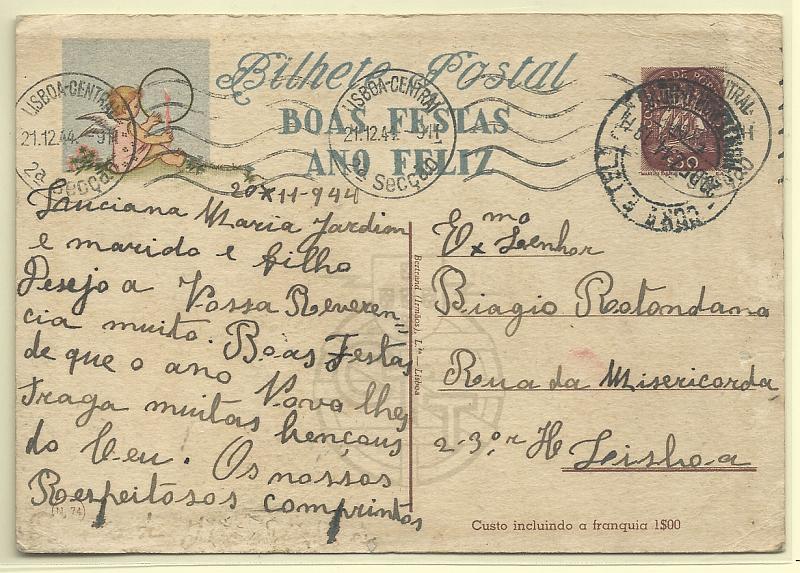 Bilhete Postal
BOAS FESTAS
ANO FELIZ
LISBOA-CENTRAL
21.12.44 - 9H
2a Secção
LISBOA-CENTRAL
21.12.44
Secção
20-XII-944
Luciana Maria Jardim
e marido e filho
Desejo a Vossa Reveren=
cia muito. Boas Festas
de que o ano Novo lhes
traga muitas bençous
do Ceu. Os nossos
Respeitosos comprintos
(N. 74)
Bertrand (Irmãos), L.da Lisboa
Exmo Senhor
Biagio Rotondano
Rua da Misericorda,
2-3.º H
Lisboa
Custo incluindo a franquia 1$00